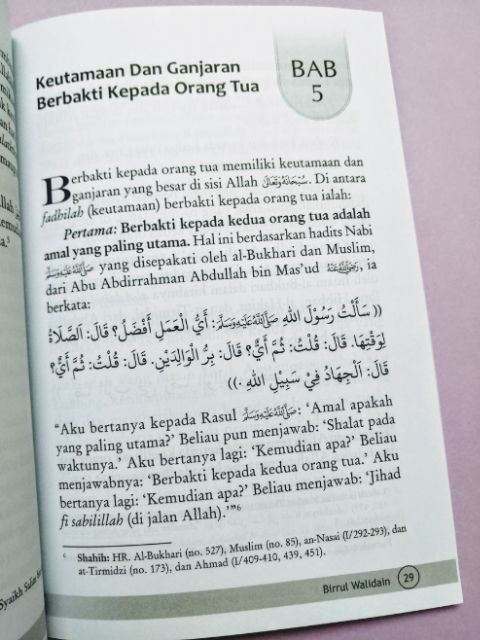 Keutamaan Dan Ganjaran
Berbakti Kepada Orang Tua
BAB
5
Berbakti kepada orang tua memiliki keutamaan dan
ganjaran yang besar di sisi Allah سُبْحَانَهُ وَتَعَالَىٰ. Di antara
fadhilah (keutamaan) berbakti kepada orang tua ialah:
Pertama: Berbakti kepada kedua orang tua adalah
amal yang paling utama. Hal ini berdasarkan hadits Nabi
ﷺ yang disepakati oleh al-Bukhari dan Muslim,
dari Abu Abdirrahman Abdullah bin Mas'ud رَضِيَ اللَّهُ عَنْهُ, ia
berkata:
((سَأَلْتُ رَسُوْلَ اللهِ ﷺ: أَيُّ الْعَمَلِ أَفْضَلُ؟ قَالَ: اَلصَّلَاةُ
لِوَقْتِهَا. قَالَ: قُلْتُ: ثُمَّ أَيٌّ؟ قَالَ: بِرُّ الْوَالِدَيْنِ. قَالَ: قُلْتُ: ثُمَّ أَيٌّ؟
قَالَ: اَلْجِهَادُ فِيْ سَبِيْلِ اللهِ.))
“Aku bertanya kepada Rasul ﷺ: ‘Amal apakah
yang paling utama?’ Beliau pun menjawab: ‘Shalat pada
waktunya.’ Aku bertanya lagi: ‘Kemudian apa?’ Beliau
menjawabnya: ‘Berbakti kepada kedua orang tua.’ Aku
bertanya lagi: ‘Kemudian apa?’ Beliau menjawab: ‘Jihad
fi sabilillah (di jalan Allah).’”6
6 Shahih: HR. Al-Bukhari (no. 527), Muslim (no. 85), an-Nasai (I/292-293), dan
at-Tirmidzi (no. 173), dan Ahmad (I/409-410, 439, 451).
Birrul Walidain 29